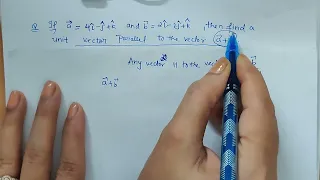 Q. If a⃗ = 4î-ĵ+k̂ and b⃗ = 2î-2ĵ+k̂, then find a
unit vector parallel to the vector a⃗+
Any vector || to the vec b⃗
a⃗+b⃗